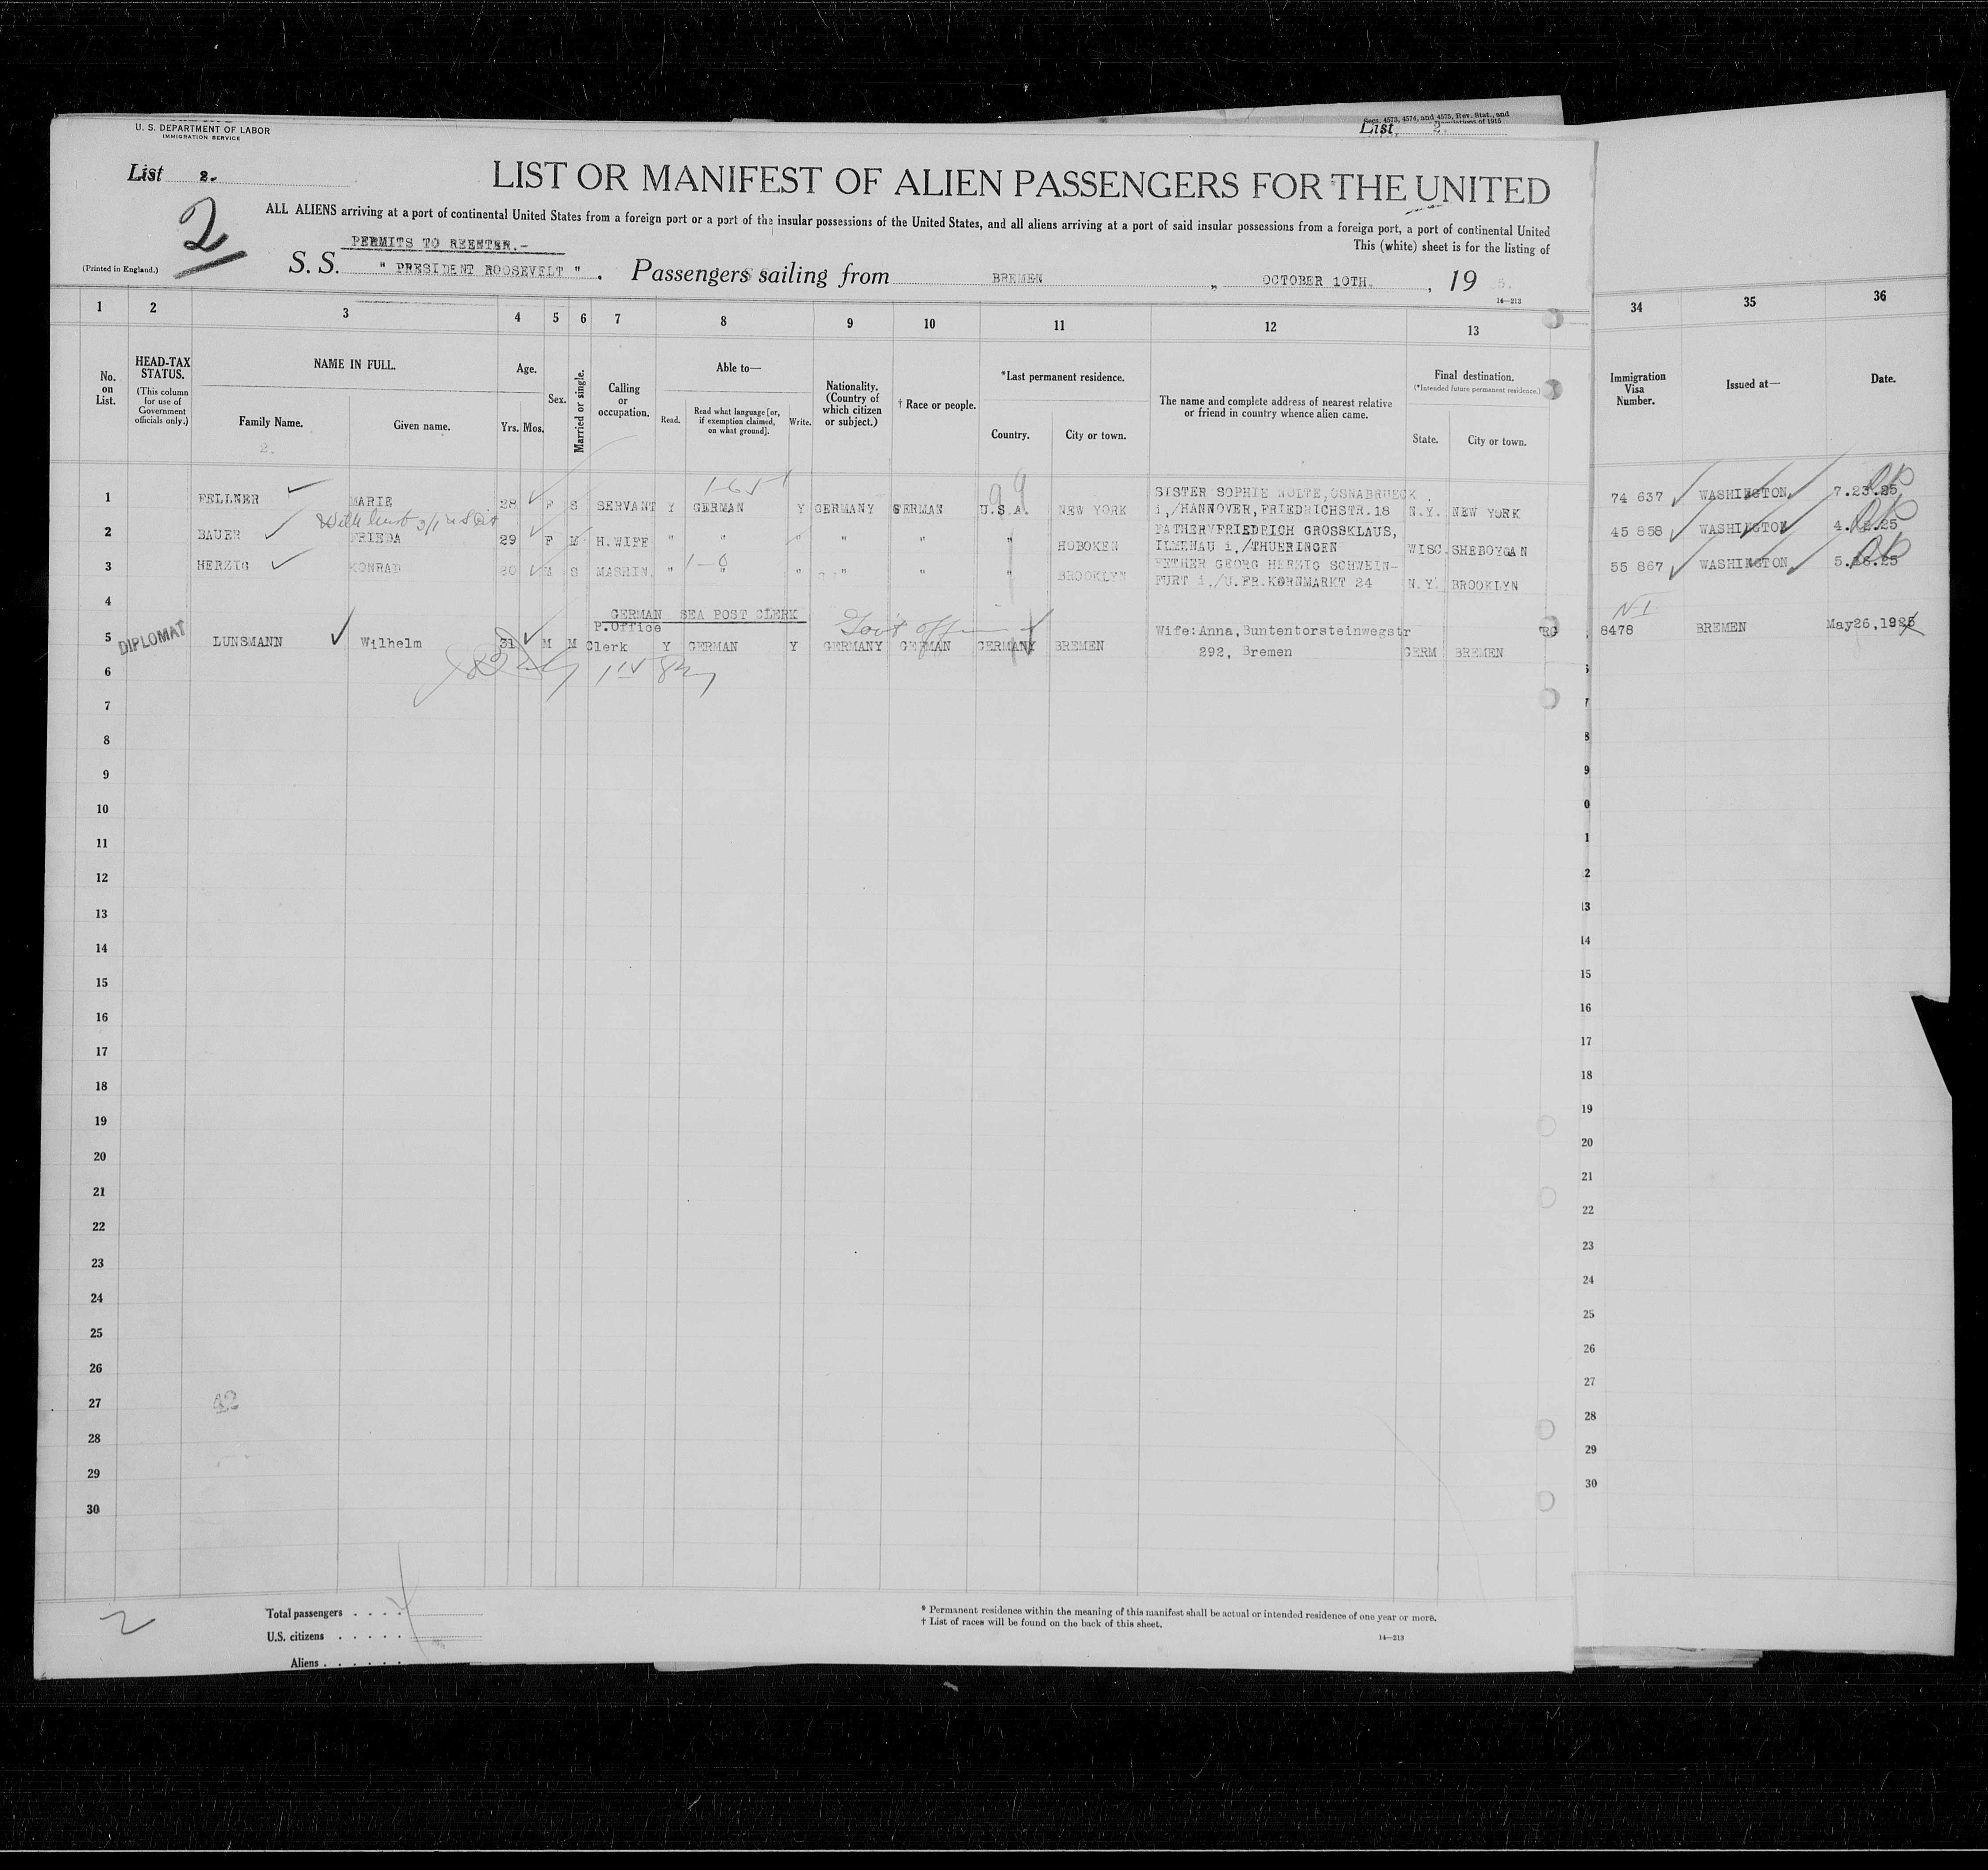 U. S. DEPARTMENT OF LABOR
IMMIGRATION SERVICE
Secs. 4573, 4574, and 4575, Rev. Stat., and
of 1915
List 2.
List 2.
LIST OR MANIFEST OF ALIEN PASSENGERS FOR THE UNITED
2
ALL ALIENS arriving at a port of continental United States from a foreign port or a port of the insular possessions of the United States, and all aliens arriving at a port of said insular possessions from a foreign port, a port of continental United
This (white) sheet is for the listing of
PERMITS TO REENTER.-
(Printed in England.)
S. S. " PRESIDENT ROOSEVELT " . Passengers sailing from BREMEN , OCTOBER 10TH. , 19 5.
14—213
1 2 3 4 5 6 7 8 9 10 11 12 13 34 35 36
No. on List.
HEAD-TAX STATUS.
(This column for use of Government officials only.)
NAME IN FULL.
Family Name. Given name.
2.
Age.
Yrs. Mos.
Sex.
Married or single.
Calling or occupation.
Able to—
Read. Read what language [or, if exemption claimed, on what ground]. Write.
Nationality. (Country of which citizen or subject.)
† Race or people.
*Last permanent residence.
Country. City or town.
The name and complete address of nearest relative or friend in country whence alien came.
Final destination.
(*Intended future permanent residence.)
State. City or town.
Immigration Visa Number.
Issued at—
Date.
1 FELLNER MARIE 28 F S SERVANT Y GERMAN Y GERMANY GERMAN U.S.A. NEW YORK SISTER SOPHIE NOLTE, OSNABRUECK
i,/HANNOVER, FRIEDRICHSTR.18 N.Y. NEW YORK 74 637 WASHINGTON 7.23.25 OK
99
2 BAUER FRIEDA 29 F M H.WIFE " " " " " " HOBOKEN FATHER FRIEDRICH GROSSKLAUS,
ILMENAU i./THUERINGEN WISC. SHEBOYGAN 45 858 WASHINGTON 4. .25 OK
3 HERZIG KONRAD 20 M S MASHIN. " " " " " " BROOKLYN FETHER GEORG HERZIG SCHWEIN-
FURT i./U.FR.KORNMARKT 24 N.Y. BROOKLYN 55 867 WASHINGTON 5.16.25 OK
4
GERMAN SEA POST CLERK
N I
5 DIPLOMAT LUNSMANN Wilhelm 31 M M P.Office Clerk Y GERMAN Y GERMANY GERMAN GERMANY BREMEN Wife:Anna,Buntentorsteinwegstr
292, Bremen GERM BREMEN 8478 BREMEN May26,1925
6
7
8
9
10
11
12
13
14
15
16
17
18
19
20
21
22
23
24
25
26
27 42
28
29
30
2
Total passengers . . . .
U.S. citizens . . . . .
Aliens . . . . . .
* Permanent residence within the meaning of this manifest shall be actual or intended residence of one year or more.
† List of races will be found on the back of this sheet.
14—213